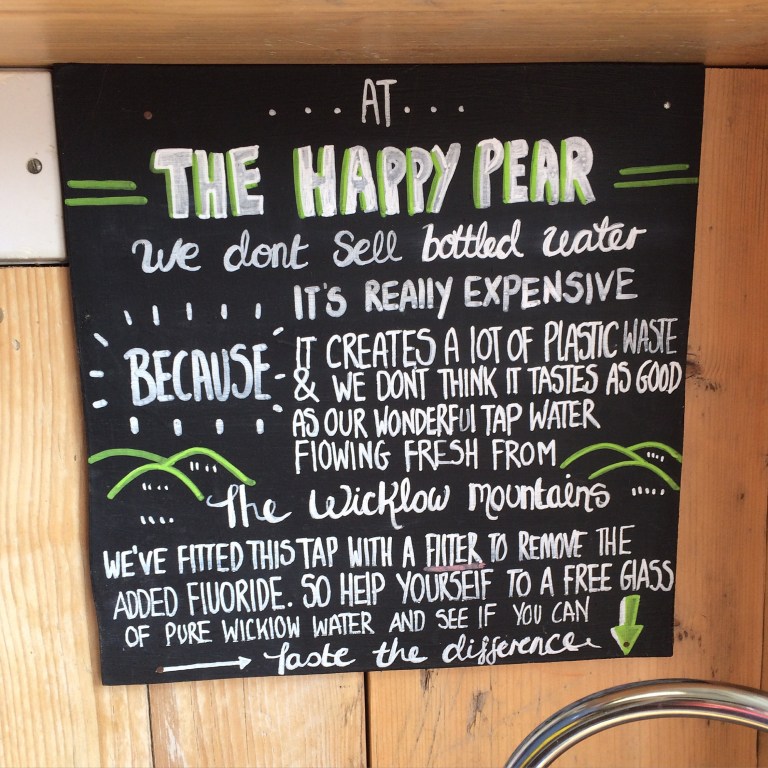 ... AT ...
THE HAPPY PEAR
We dont Sell bottled water
IT'S REAllY EXPENSIVE
BECAUSE
IT CREATES A lOT OF PlASTIC WASTE
& WE DONT THINK IT TASTES AS GOOD
AS OUR WONDERFUl TAP WATER
FlOWING FRESH FROM
The Wicklow Mountains
WE'VE FITTED THIS TAP WITH A FIlTER TO REMOVE THE
ADDED FlUORIDE. SO HElP YOURSElF TO A FREE GlASS
OF PURE WICKlOW WATER AND SEE IF YOU CAN
Taste the difference